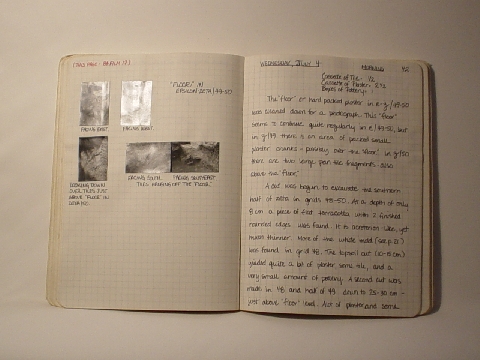 "FLOOR" IN
EPSILON/ZETA/49-50
FACING EAST.
FACING EAST.
LOOKING DOWN
OVER TILES JUST
ABOVE "FLOOR" IN
FACING SOUTH,
FACING SOUTHEAST
TILES OFF THE "FLOOR."
WEDNESDAY, JULY 4
MORNING
42
Concrete of Tile: 1/2
Baskets of Plaster: 2 1/2
Boxes of Pottery: 1
The "floor" or hard packed plaster in e-z/49-50
was cleaned down for a photograph. This "floor"
seems to continue quite regularly in e/49-50, but
in z/49 there is an area of packed small
plaster chunks - possibly over the floor. In z/50
there are two large pan tile fragments also
above the "floor."
A cut was begun to excavate the southern
half of zeta in grids 48-50. At a depth of only
8 cm a piece of flat terracotta with 2 finished
rounded edges was found. It is acroterion like, yet
much thinner. More of the white mold (see p. 21)
was found in grid 48. The topsoil cut (10-15 cm)
yielded quite a bit of plaster, some tile, and a
very small amount of pottery. A second cut was
made in 48 and half of 49 down to 25-30 cm -
just above "floor" level. A lot of plaster and some